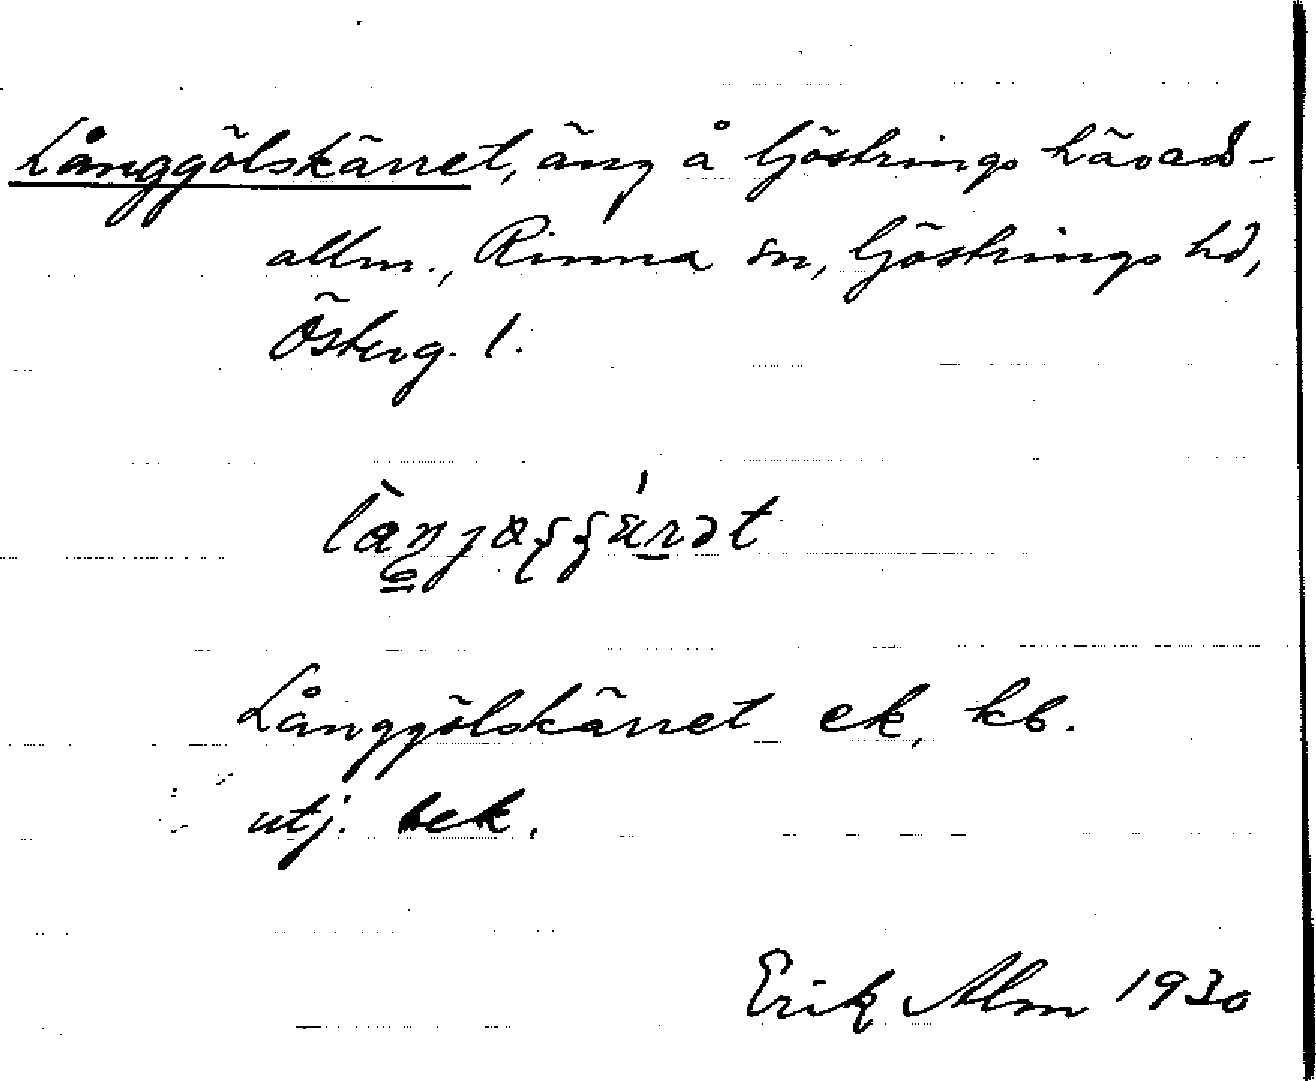 Långgölskärret, äng å Göstrings härad-
allm., Rinna sn, Göstrings hd,
Österg. l.
Långgölskärret ek. kb.
utj. bek.
Erik Alm 1930